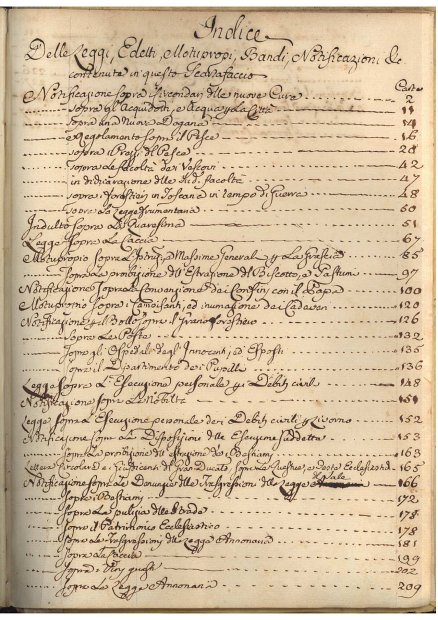 Indice
Delle Leggi, Editti, Motupropri, Bandi, Notificazioni &c
contenute in questo
Carte
Notificazione sopra i Circondari alle nuove Cure 2
sopra gli Acquidotti e Acqua la Città 11
sopra una Nuova Dogana 14
e Regolamento sopra il Pesce 16
sopra i Prezzi del Pesce 28
sopra le facoltà dei Vescovi 42
in dichiarazione delle facoltà 47
sopra i forestieri in Toscana in tempo di Guerra 48
sopra la Legge Frumentaria 50
Indulto sopra la Quaresima 51
Legge sopra la Caccia 67
Motuproprio sopra Massime Generali la Grascia 85
sopra la proibizione dell'Estrazione del Biscotto, e Pastumi 97
Notificazione sopra la Convenzione dei Confini con il Papa 100
Motuproprio sopra i Camposanti, ed inumazione dei Cadaveri 120
Notificazione il Bollo sopra il Grano forestiero 126
sopra le Poste 132
sopra gli Ospedali degli Innocenti, ed Esposti 135
sopra il Dipartimento dei Pupilli 136
Legge sopra l'Esecuzione personale Debiti civili 148
Notificazione sopra la Nobiltà 151
Legge sopra l'Esecuzione personale dei Debiti civili Livorno 152
Notificazione sopra la Disposizione delle Esecuzione suddetta 153
sopra la proibizione dell'estrazione de Bestiami 163
Lettera Circolare ai Giudicenti del Gran Ducato sopra Ecclesiastad. 165
Notificazione sopra le Trasgressioni delle Legge 166
sopra i Bestiami 172
sopra la pulizia delle Strade 178
sopra il Patrimonio Ecclesiastico 178
sopra le Trasgressioni della Legge Annonaria 181
sopra la Caccia 199
sopra i 202
sopra la Legge Annonaria 209